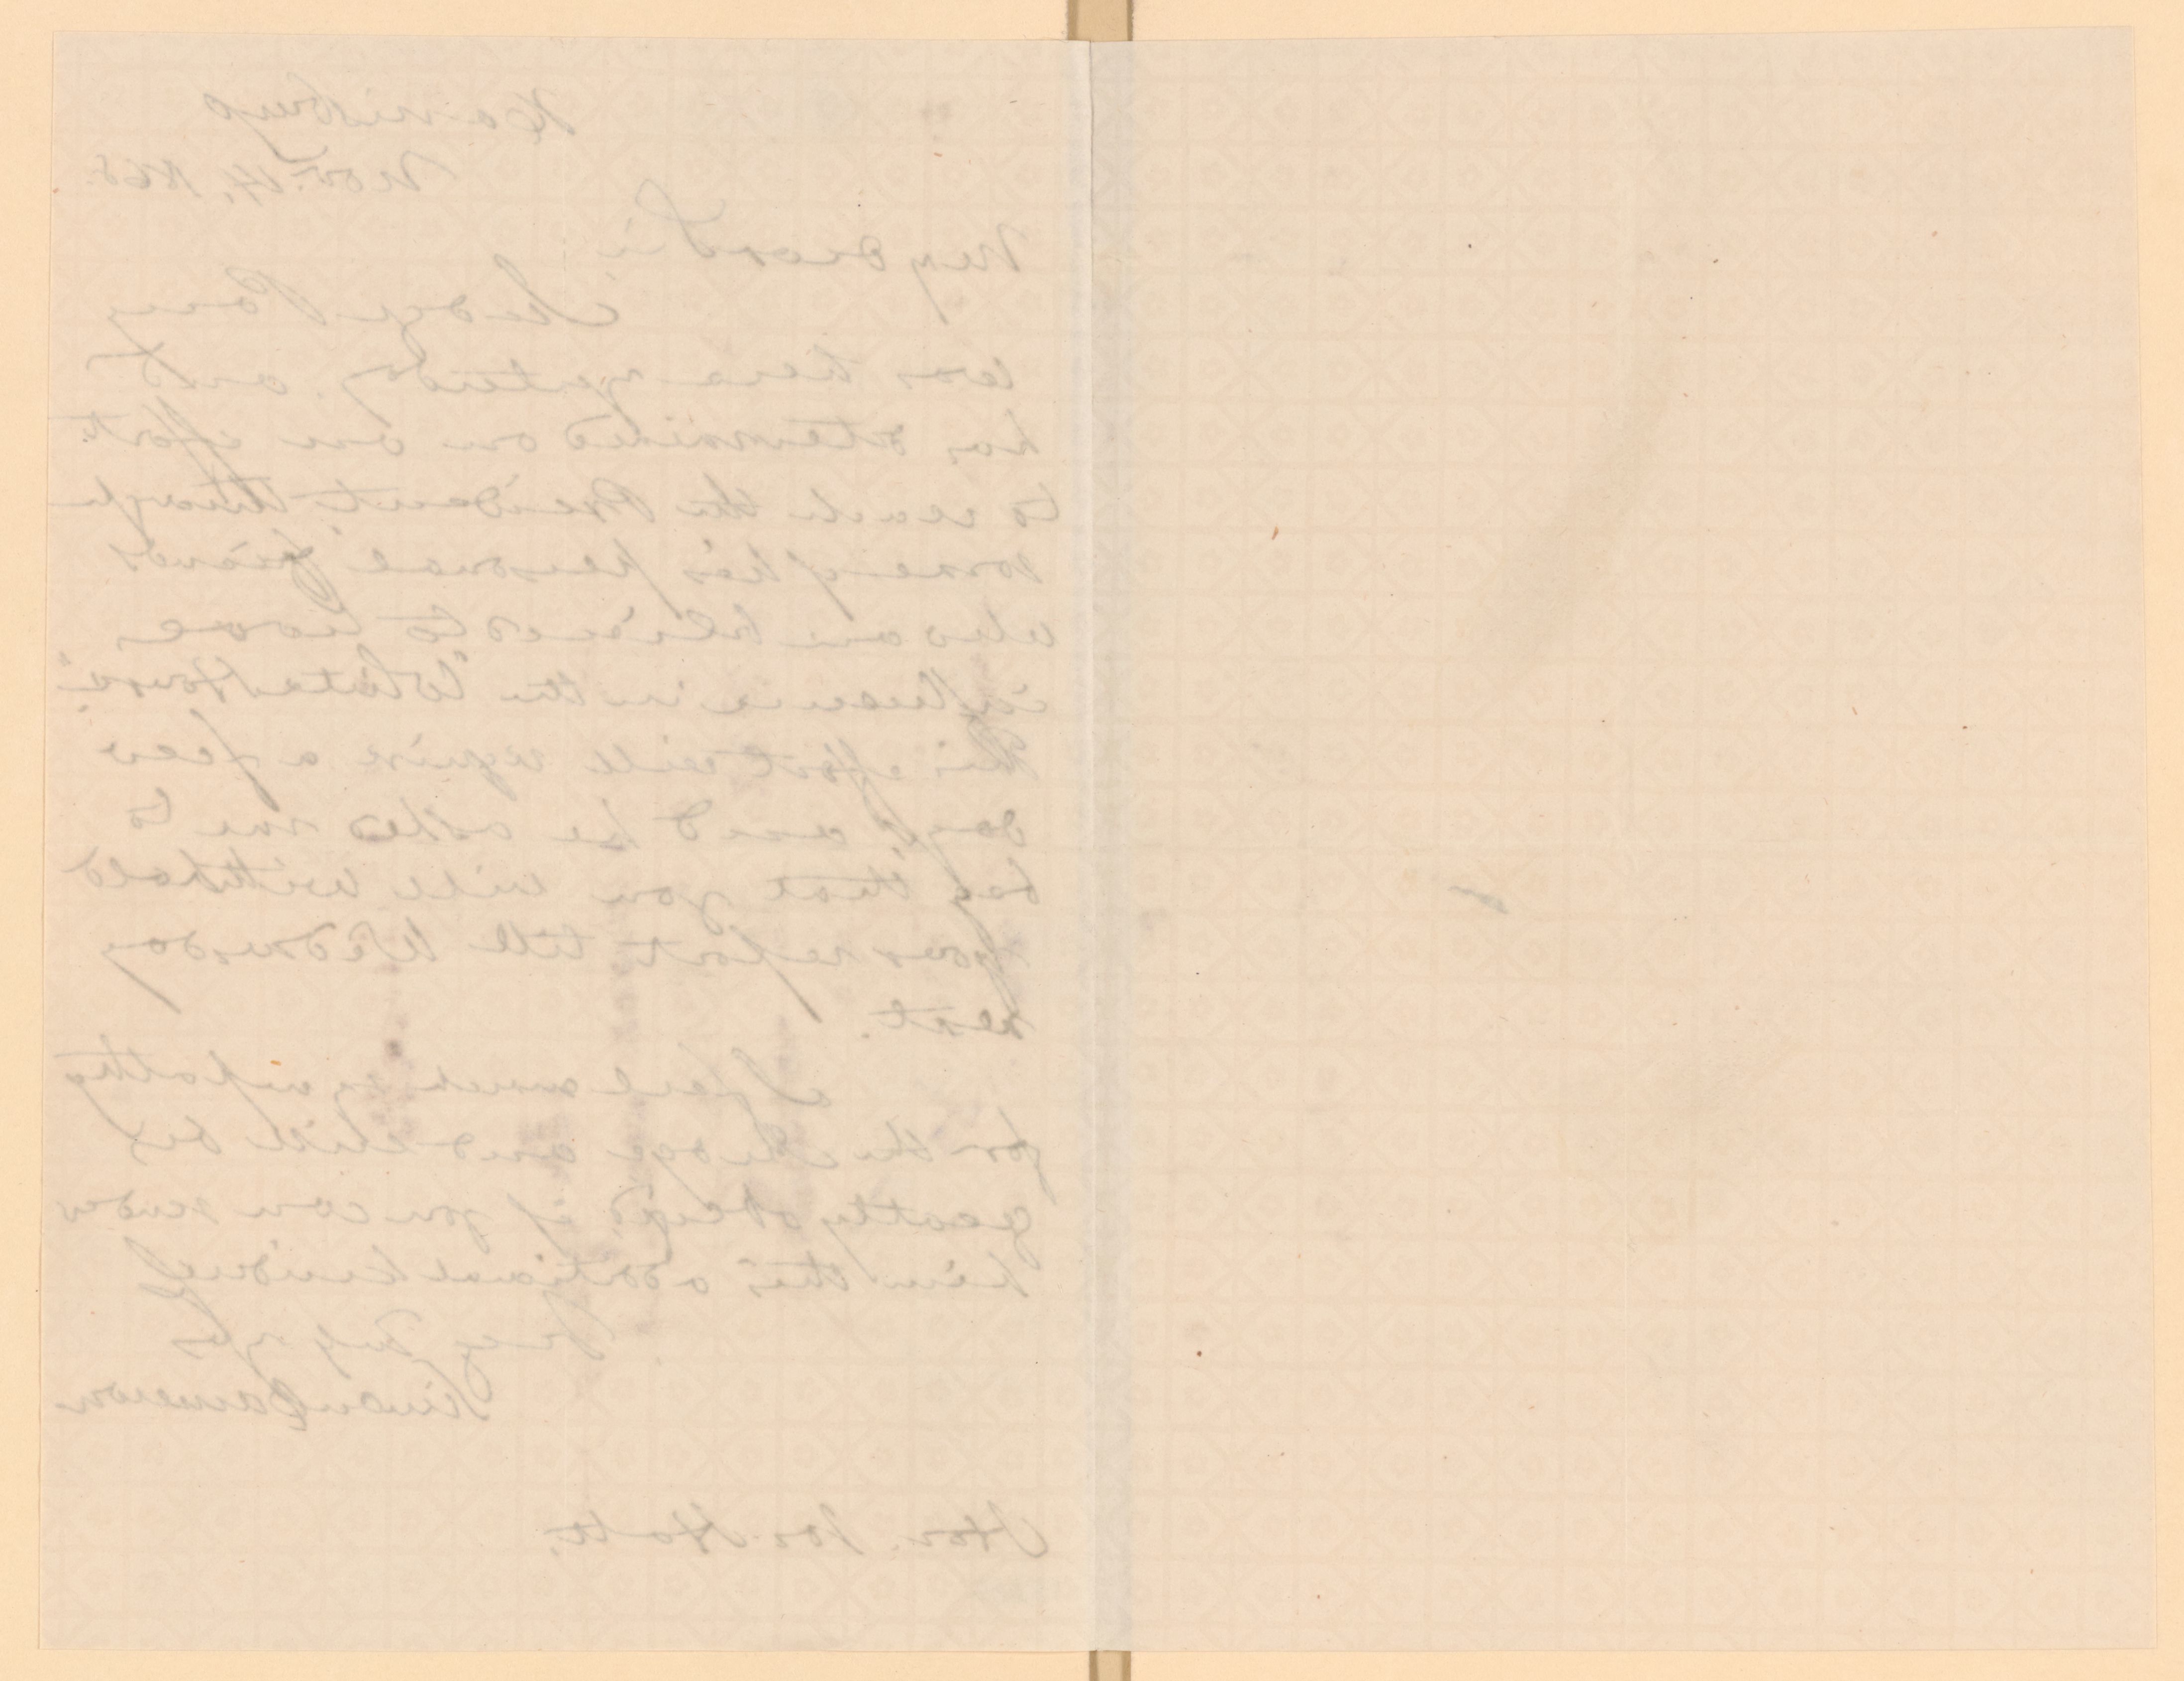 Harrisburg
Nov. 14. 1865.
My dear Sir
Judge Perry
was here yesterday and
has determined on an effort
to reach the President through
some of his personal friends
who are believed to have
influence in the "White House".
This effort will require a few
days and he asked me to
beg that you will withhold
your report till Wednesday
next.
I feel much sympathy
for the Judge and will be
greatly obliged if you can render
him this additional kindness
Very Truly yrs
Simon Cameron
Hon. Jos Holt.